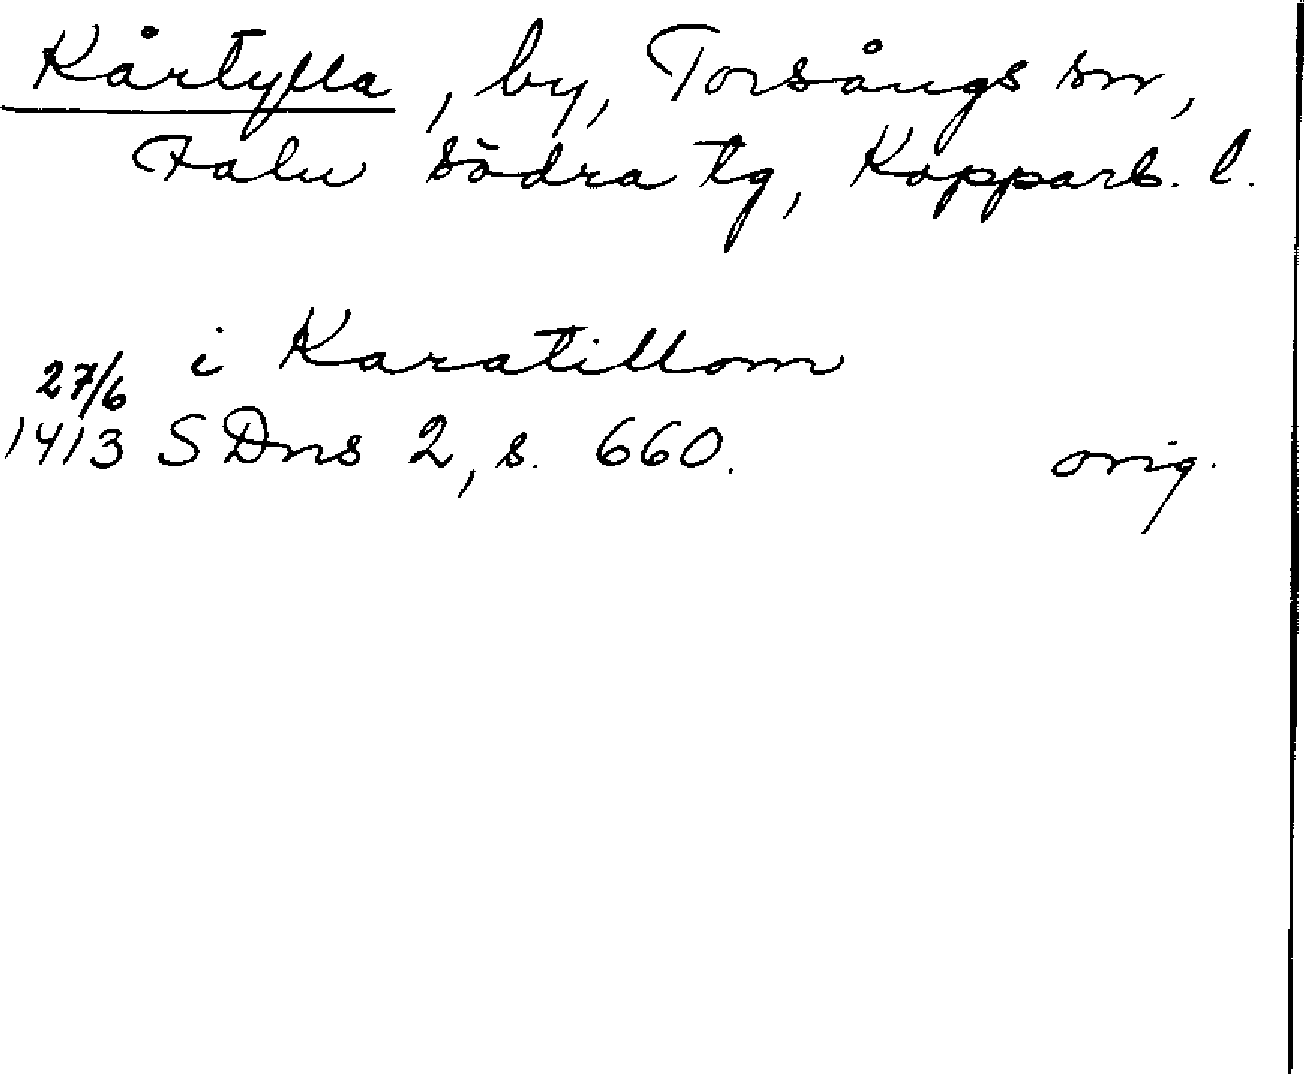 Kårtylla, by, Torsångs sn,
Falu södra tg, Kopparb. l.
i Karatillom
27/6
1413 SDns 2, s. 660. orig.